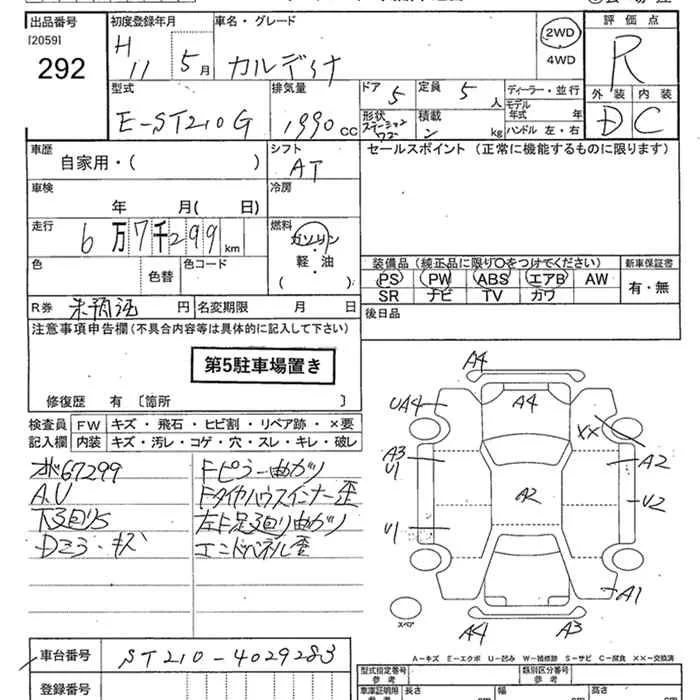 出品番号 初度登録年月 車名・グレード 評価点
[2059]
292
H 11 5月 カルディナ 2WD R
4WD
外装 内装
D C
型式 排気量 ドア 5 定員 5 人 ディーラー・並行
E-ST210G 1990 cc 形状 ステーションワゴン 積載 kg モデル年式 年
ハンドル 左・右
車歴 シフト セールスポイント (正常に機能するものに限ります)
自家用・( ) AT
車検 冷房
年 月( 日)
走行 燃料
6万7千299 km ガソリン
軽・油
( )
色 色替 色コード
装備品(純正品に限り○をつけてください) 新車保証書
PS PW ABS エアB AW 有・無
SR ナビ TV カワ
R券 円 名変期限 月 日 後日品
注意事項申告欄(不具合内容等は具体的に記入して下さい)
第5駐車場置き
修復歴 有 [箇所 ]
検査員 FW キズ・飛石・ヒビ割・リペア跡・×要
記入欄 内装 キズ・汚レ・コゲ・穴・スレ・キレ・破レ
67299 Fピラー曲ガリ
A.U Fタイヤハウスインナー歪
下廻りS 左F足廻り曲ガリ
Dミラーキズ エンドパネル歪
A4
UA4 A4 XX
A3 A2
U1
A2 U2
U1
A1
スペア
A4 A3
A-キズ E-エクボ U-凹み W-補修跡 S-サビ C-腐食 ××-交換済
車台番号 ST210-4029283
型式指定番号 参考 類別区分番号 参考
登録番号 車庫証明用 参考 長さ cm 幅 cm 高さ cm